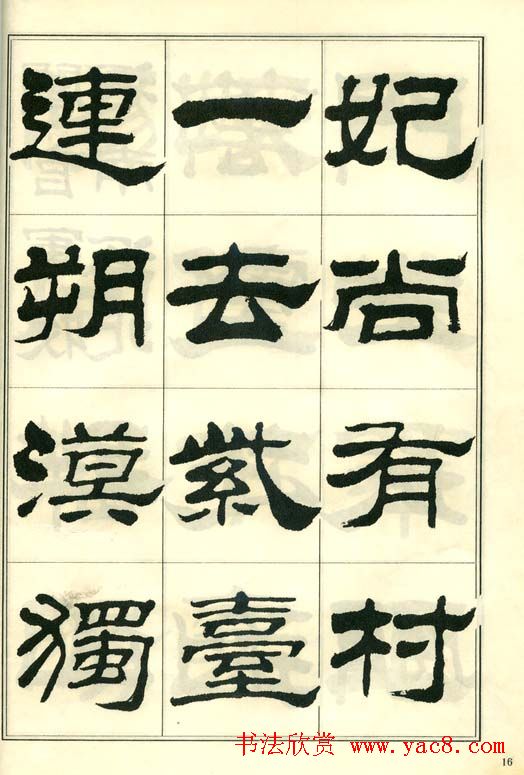 妃尚有村
一去紫臺
連朔漠獨
书法欣赏 www.yac8.com
16